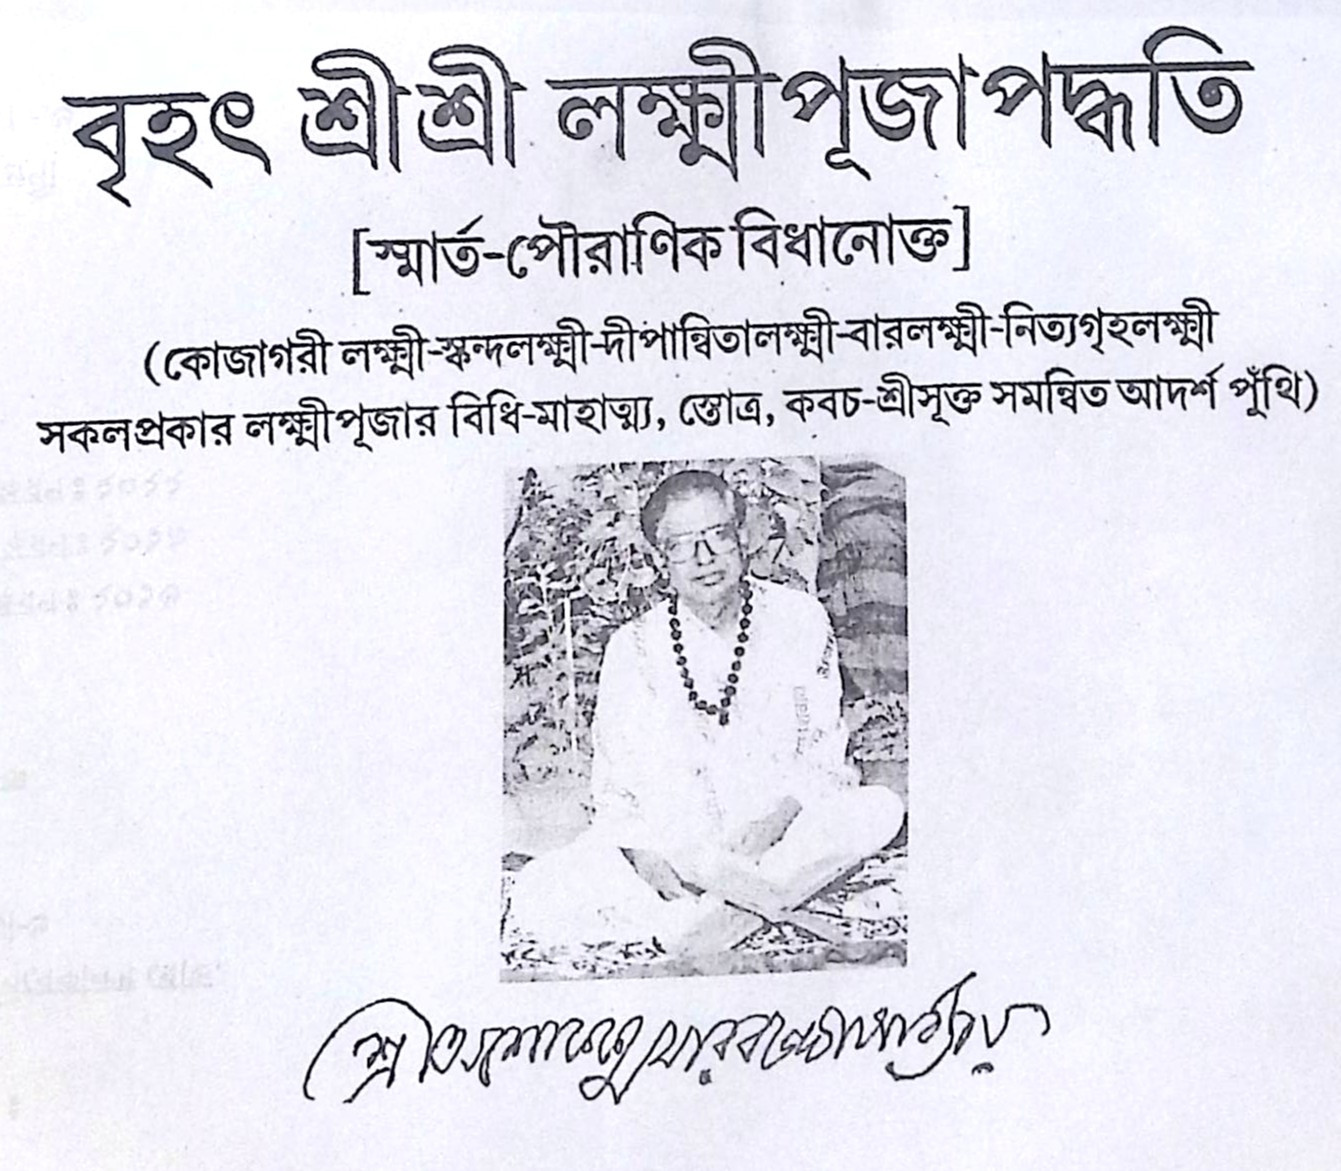 বৃহৎ শ্রীশ্রী লক্ষ্মীপূজাপদ্ধতি
[স্মার্ত-পৌরাণিক বিধানোক্ত]
(কোজাগরী লক্ষ্মী-স্কন্দলক্ষ্মী-দীপান্বিতালক্ষ্মী-বারলক্ষ্মী-নিত্যগৃহলক্ষ্মী
সকলপ্রকার লক্ষ্মীপূজার বিধি-মাহাত্ম্য, স্তোত্র, কবচ-শ্রীসূক্ত সমন্বিত আদর্শ পুঁথি)
শ্রীঅশোককুমার বন্দ্যোপাধ্যায়